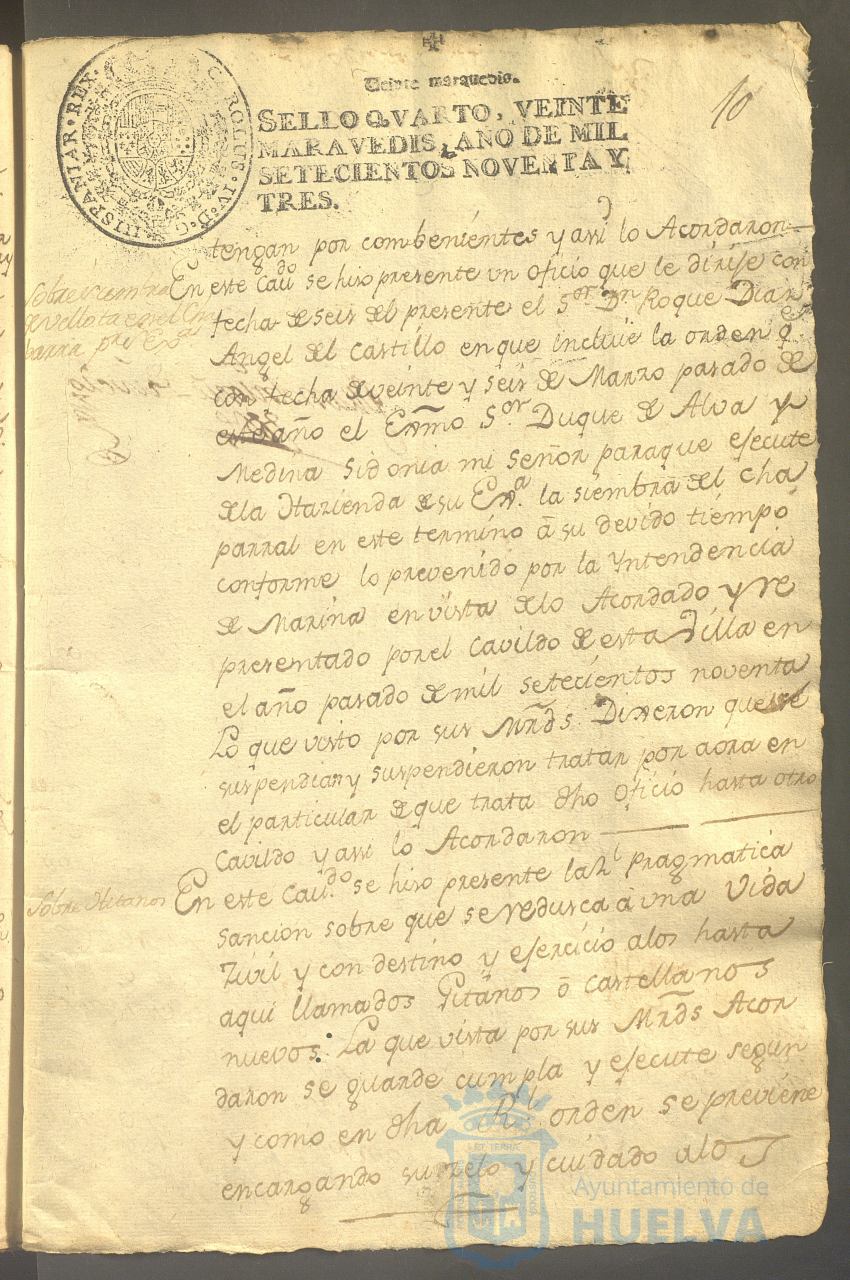 Veinte maravedis.
SELLO QVARTO, VEINTE
MARAVEDIS, AÑO DE MIL
SETECIENTOS NOVENTA Y
TRES.
CAROLUS · IV · D · G · HISPANIAR · REX ·
10
tengan por combenientes y assi lo Acordaron
Sobre siembra
de vellota en el Cha
parral pr. Exa
En este Cavdo se hiso presente un oficio que le dirije con
fecha de seis del presente el Sor. Dn Roque Diaz
Angel del Castillo en que incluie la orden q.e
con fecha de veinte y seis de Marzo pasado de
este año el Exmo Sor Duque de Alva y
Medina Sidonia mi Señor paraque ejecute
dela Hazienda de su Exa. la siembra del Cha
parral en este termino â su devido tiempo
conforme lo prevenido por la Yntendencia
de Marina en vista delo Acordado y re
presentado porel Cavildo de esta Villa en
el año pasado de mil setecientos noventa
Lo que visto por sus Mrds. Dixeron que se
suspendian y suspendieron tratar por aora en
el particular de que trata dho oficio hasta otro
Cavildo y assi lo Acordaron
Sobre Gitanos
En este Cavdo. se hiso presente la Rl pragmatica
Sancion sobre que se redusca à una Vida
Zivil y con destino y ejercicio alos hasta
aqui llamados Gitanos ô castellanos
nuevos: La que vista por sus Mrds Acor
daron se guarde cumpla y ejecute segun
y como en dha Rl orden se previene
encargando su zelo y cuidado alos
Ayuntamiento de
HUELVA